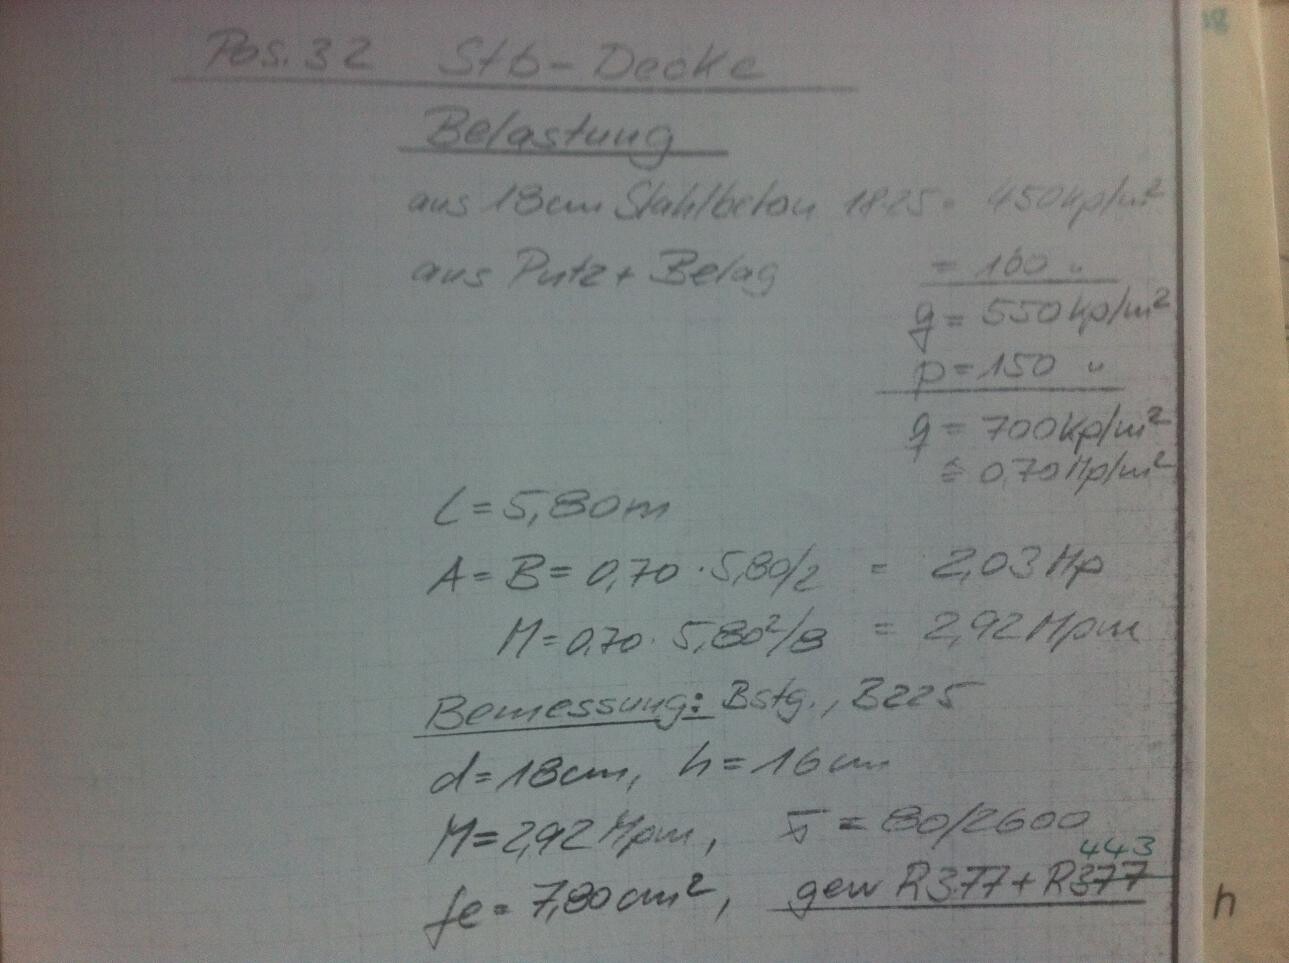 Pos. 32 Stb-Decke
Belastung
aus 18cm Stahlbeton 18·25 = 450kp/m²
aus Putz + Belag = 100 "
g = 550kp/m²
p = 150 "
q = 700kp/m²
≙ 0,70Mp/m²
L = 5,80m
A = B = 0,70 · 5,80/2 = 2,03Mp
M = 0,70 · 5,80²/8 = 2,92Mpm
Bemessung: Bstg., B225
d = 18cm, h = 16cm
M = 2,92Mpm, σ̄ = 80/2600
443
fe = 7,80cm², gew R377 + R377
h